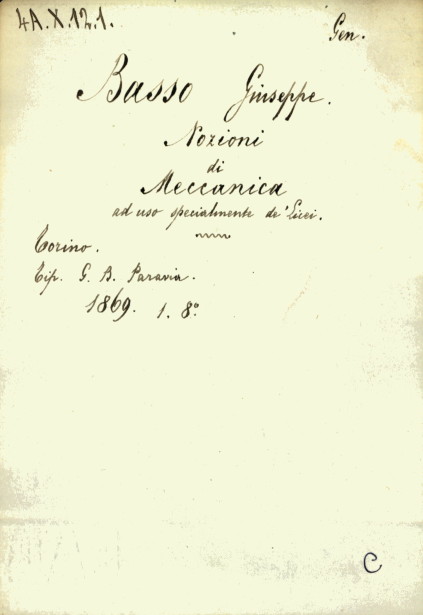 4A.X.12.1.
Gen.
Basso Giuseppe.
Nozioni
di
Meccanica
ad uso specialmente de' Licei.
Torino.
Tip. G. B. Paravia.
1869. 1. 8°
C